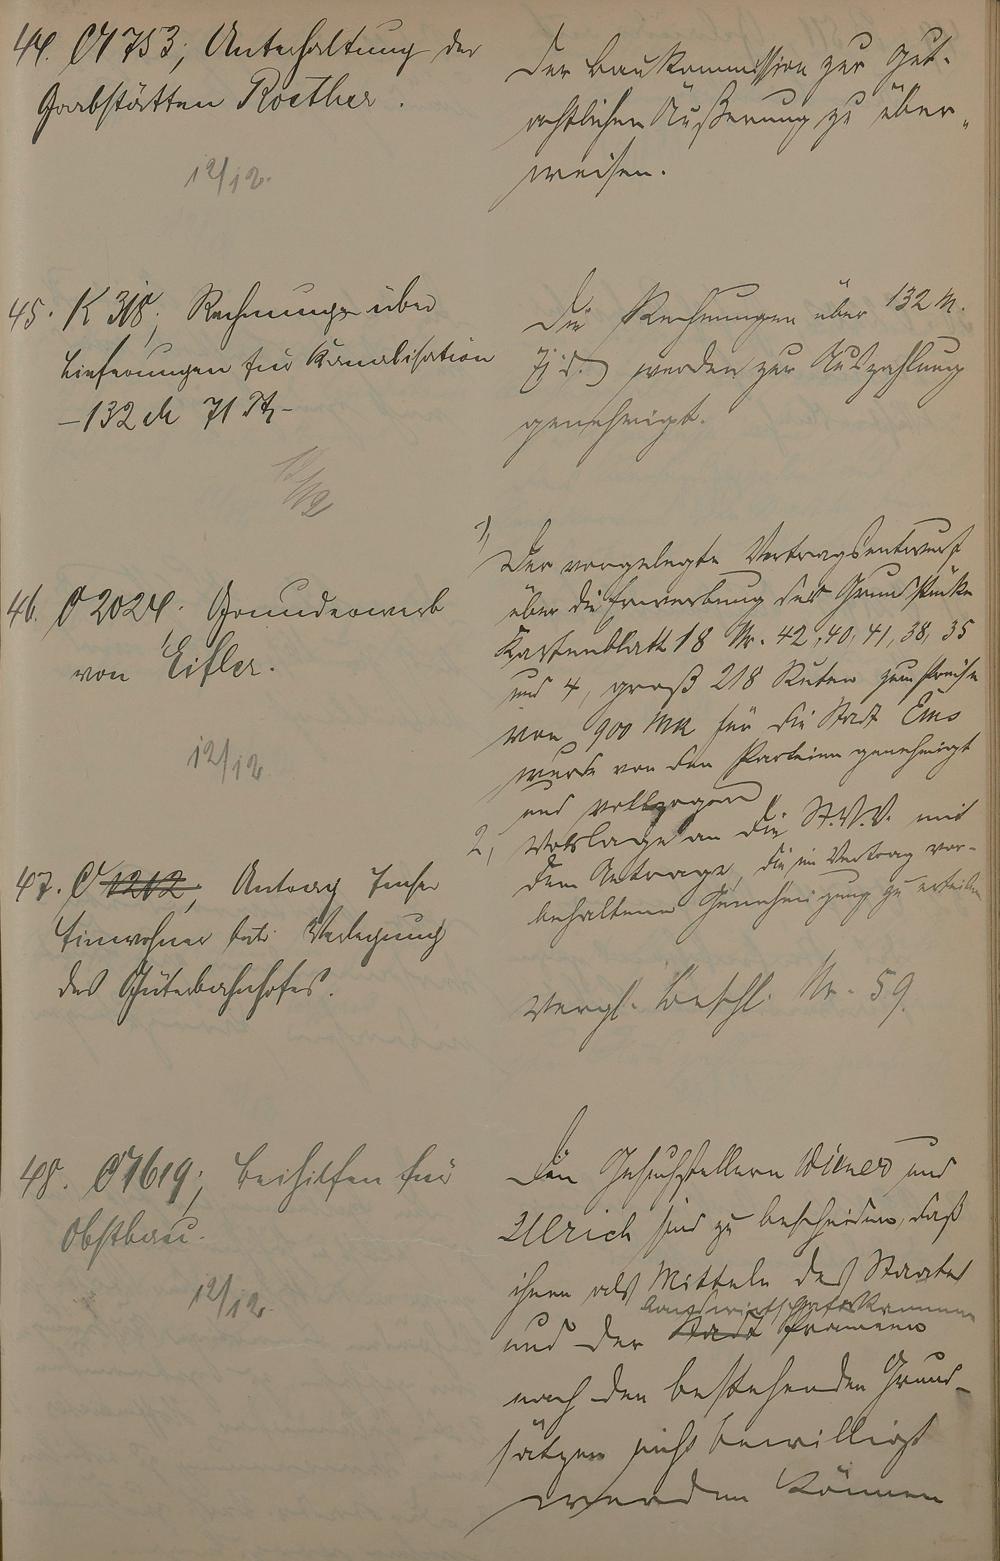 44. C 1753; Unterhaltung der
Grabstätten Roether.
12/12.
Der Baukommission zur gut-
achtlichen Äußerung zu über-
weisen.
45. K 318; Rechnungen über
Lieferungen für Kanalisation
– 132 M 71 Pf –
12/12
Die Rechnungen über 132 M.
71 Pf. werden zur Auszahlung
genehmigt.
46. C 2024. Grunderwerb
von Eifler.
12/12
1, Der vorgelegte Vertragsentwurf
über die Erwerbung der Grundstücke
Kartenblatt 18 Nr. 42, 40, 41, 38, 35
und 4, groß 218 Ruten zum Preise
von 900 Mk für die Stadt Ems
wurde von den Parteien genehmigt
und vollzogen
2, Vorlage an die St.V.V. mit
dem Antrage, die im Vertrag vor-
behaltene Genehmigung zu erteilen
47. C 1212, Antrag Emser
Einwohner betr. Verlegung
des Güterbahnhofes.
Vergl. Beschl. Nr. 59.
48. C 1619; Beihilfen für
Obstbau.
12/12.
Den Gesuchstellern und
Ullrich sind zu bescheiden, daß
ihnen als Mitteln des Staates
und der Landwirtschaftskammer
Stadt Prämien
nach den bestehenden Grund-
sätzen nicht bewilligt
werden können